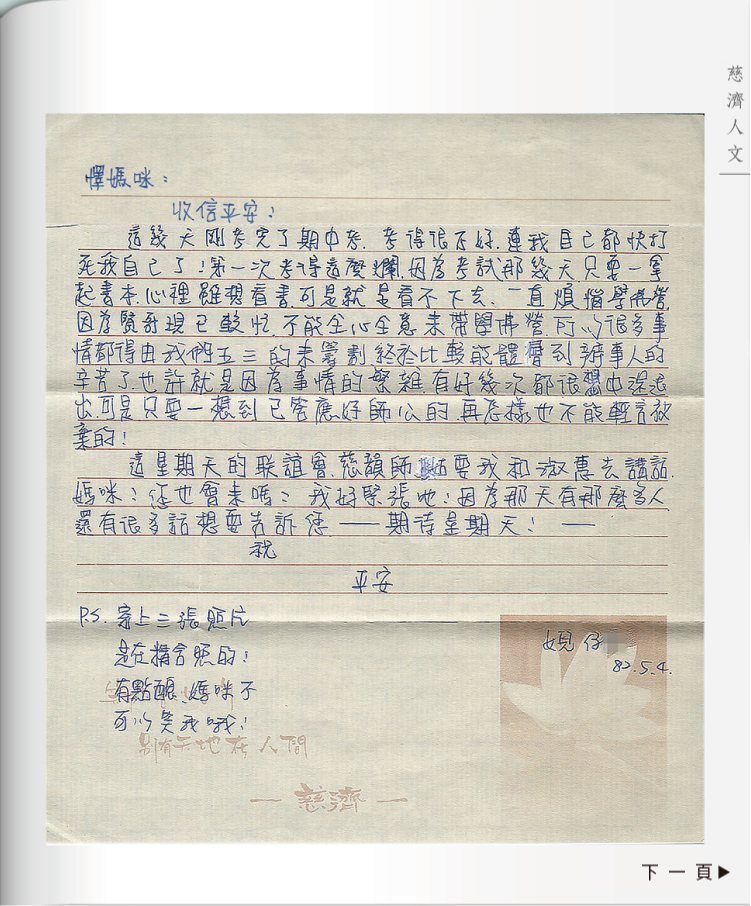 慈濟人文
懌媽咪：
收信平安！
這幾天剛考完了期中考，考得很不好，連我自己都快打
死我自己了！第一次考得這麼爛，因為考試那幾天，只要一拿
起書本，心裡雖想看書，可是就是看不下去，一直煩惱學佛營，
因為賢 現已較忙，不能全心全意來帶學佛營，所以很多事
情都得由我們五三的來籌劃，終於比較能體會到辦事人的
辛苦了，也許就是因為事情的繁雜，有好幾次都很想中途退
出，可是只要一想到已答應好師公的，再怎樣也不能輕言放
棄的！
這星期天的聯誼會，慈韻師姑要我和淑惠去講話，
媽咪！您也會來嗎？我好緊張地！因為那天有那麼多人，
還有很多話想要告訴您——期待星期天！——
祝
平安
P.S. 寄上三張照片
是在精舍照的！
有點醜，媽咪不
可以笑我哦！
娊仔
82.5.4.
別有天地在人間
— 慈濟 —
下一頁▶